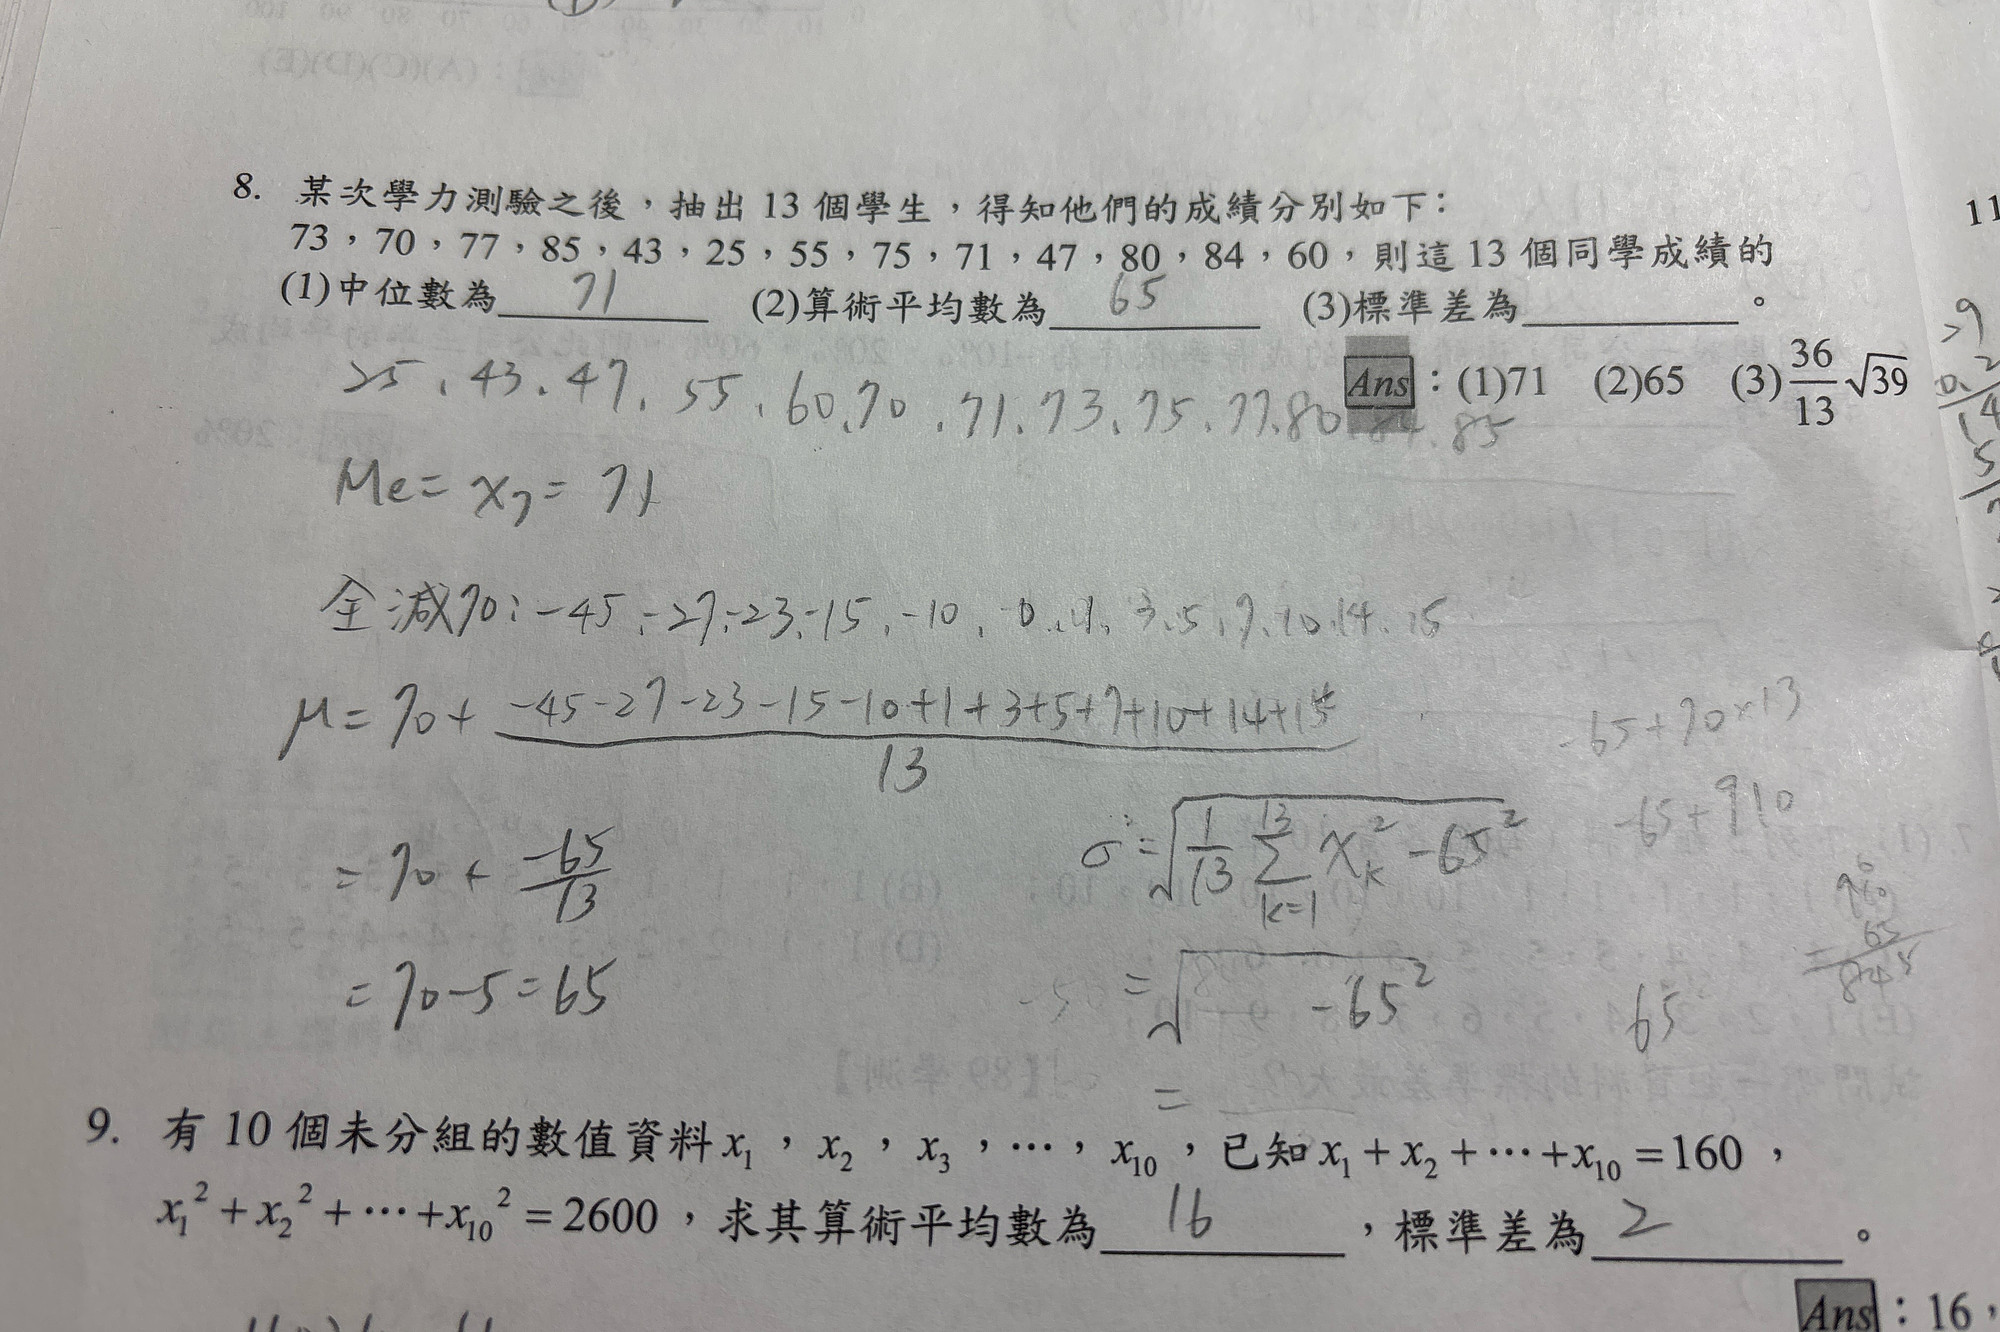 8. 某次學力測驗之後，抽出 13 個學生，得知他們的成績分別如下：
73，70，77，85，43，25，55，75，71，47，80，84，60，則這 13 個同學成績的
(1)中位數為 71 (2)算術平均數為 65 (3)標準差為＿＿＿＿。
Ans：(1)71 (2)65 (3) 36/13 √39
25、43、47、55、60、70、71、73、75、77、80、84、85
Me = x₇ = 71
全減70：-45、-27、-23、-15、-10、0、1、3、5、7、10、14、15
μ = 70 + (-45-27-23-15-10+1+3+5+7+10+14+15)/13
= 70 + -65/13
= 70-5 = 65
σ = √(1/13 Σ_{k=1}^{13} x_k² - 65²)
= √( - 65²)
=
-65+70×13
-65+910
910
65
845
65
9. 有 10 個未分組的數值資料 x₁，x₂，x₃，…，x₁₀，已知 x₁ + x₂ + ⋯ + x₁₀ = 160，
x₁² + x₂² + ⋯ + x₁₀² = 2600，求其算術平均數為 16，標準差為 2。
Ans：16，
11